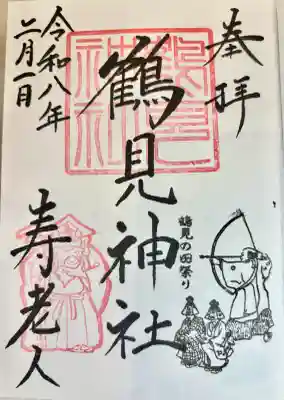 奉拝
鶴見神社
鶴見神社
鶴見の田祭り
令和八年
二月一日
寿老人